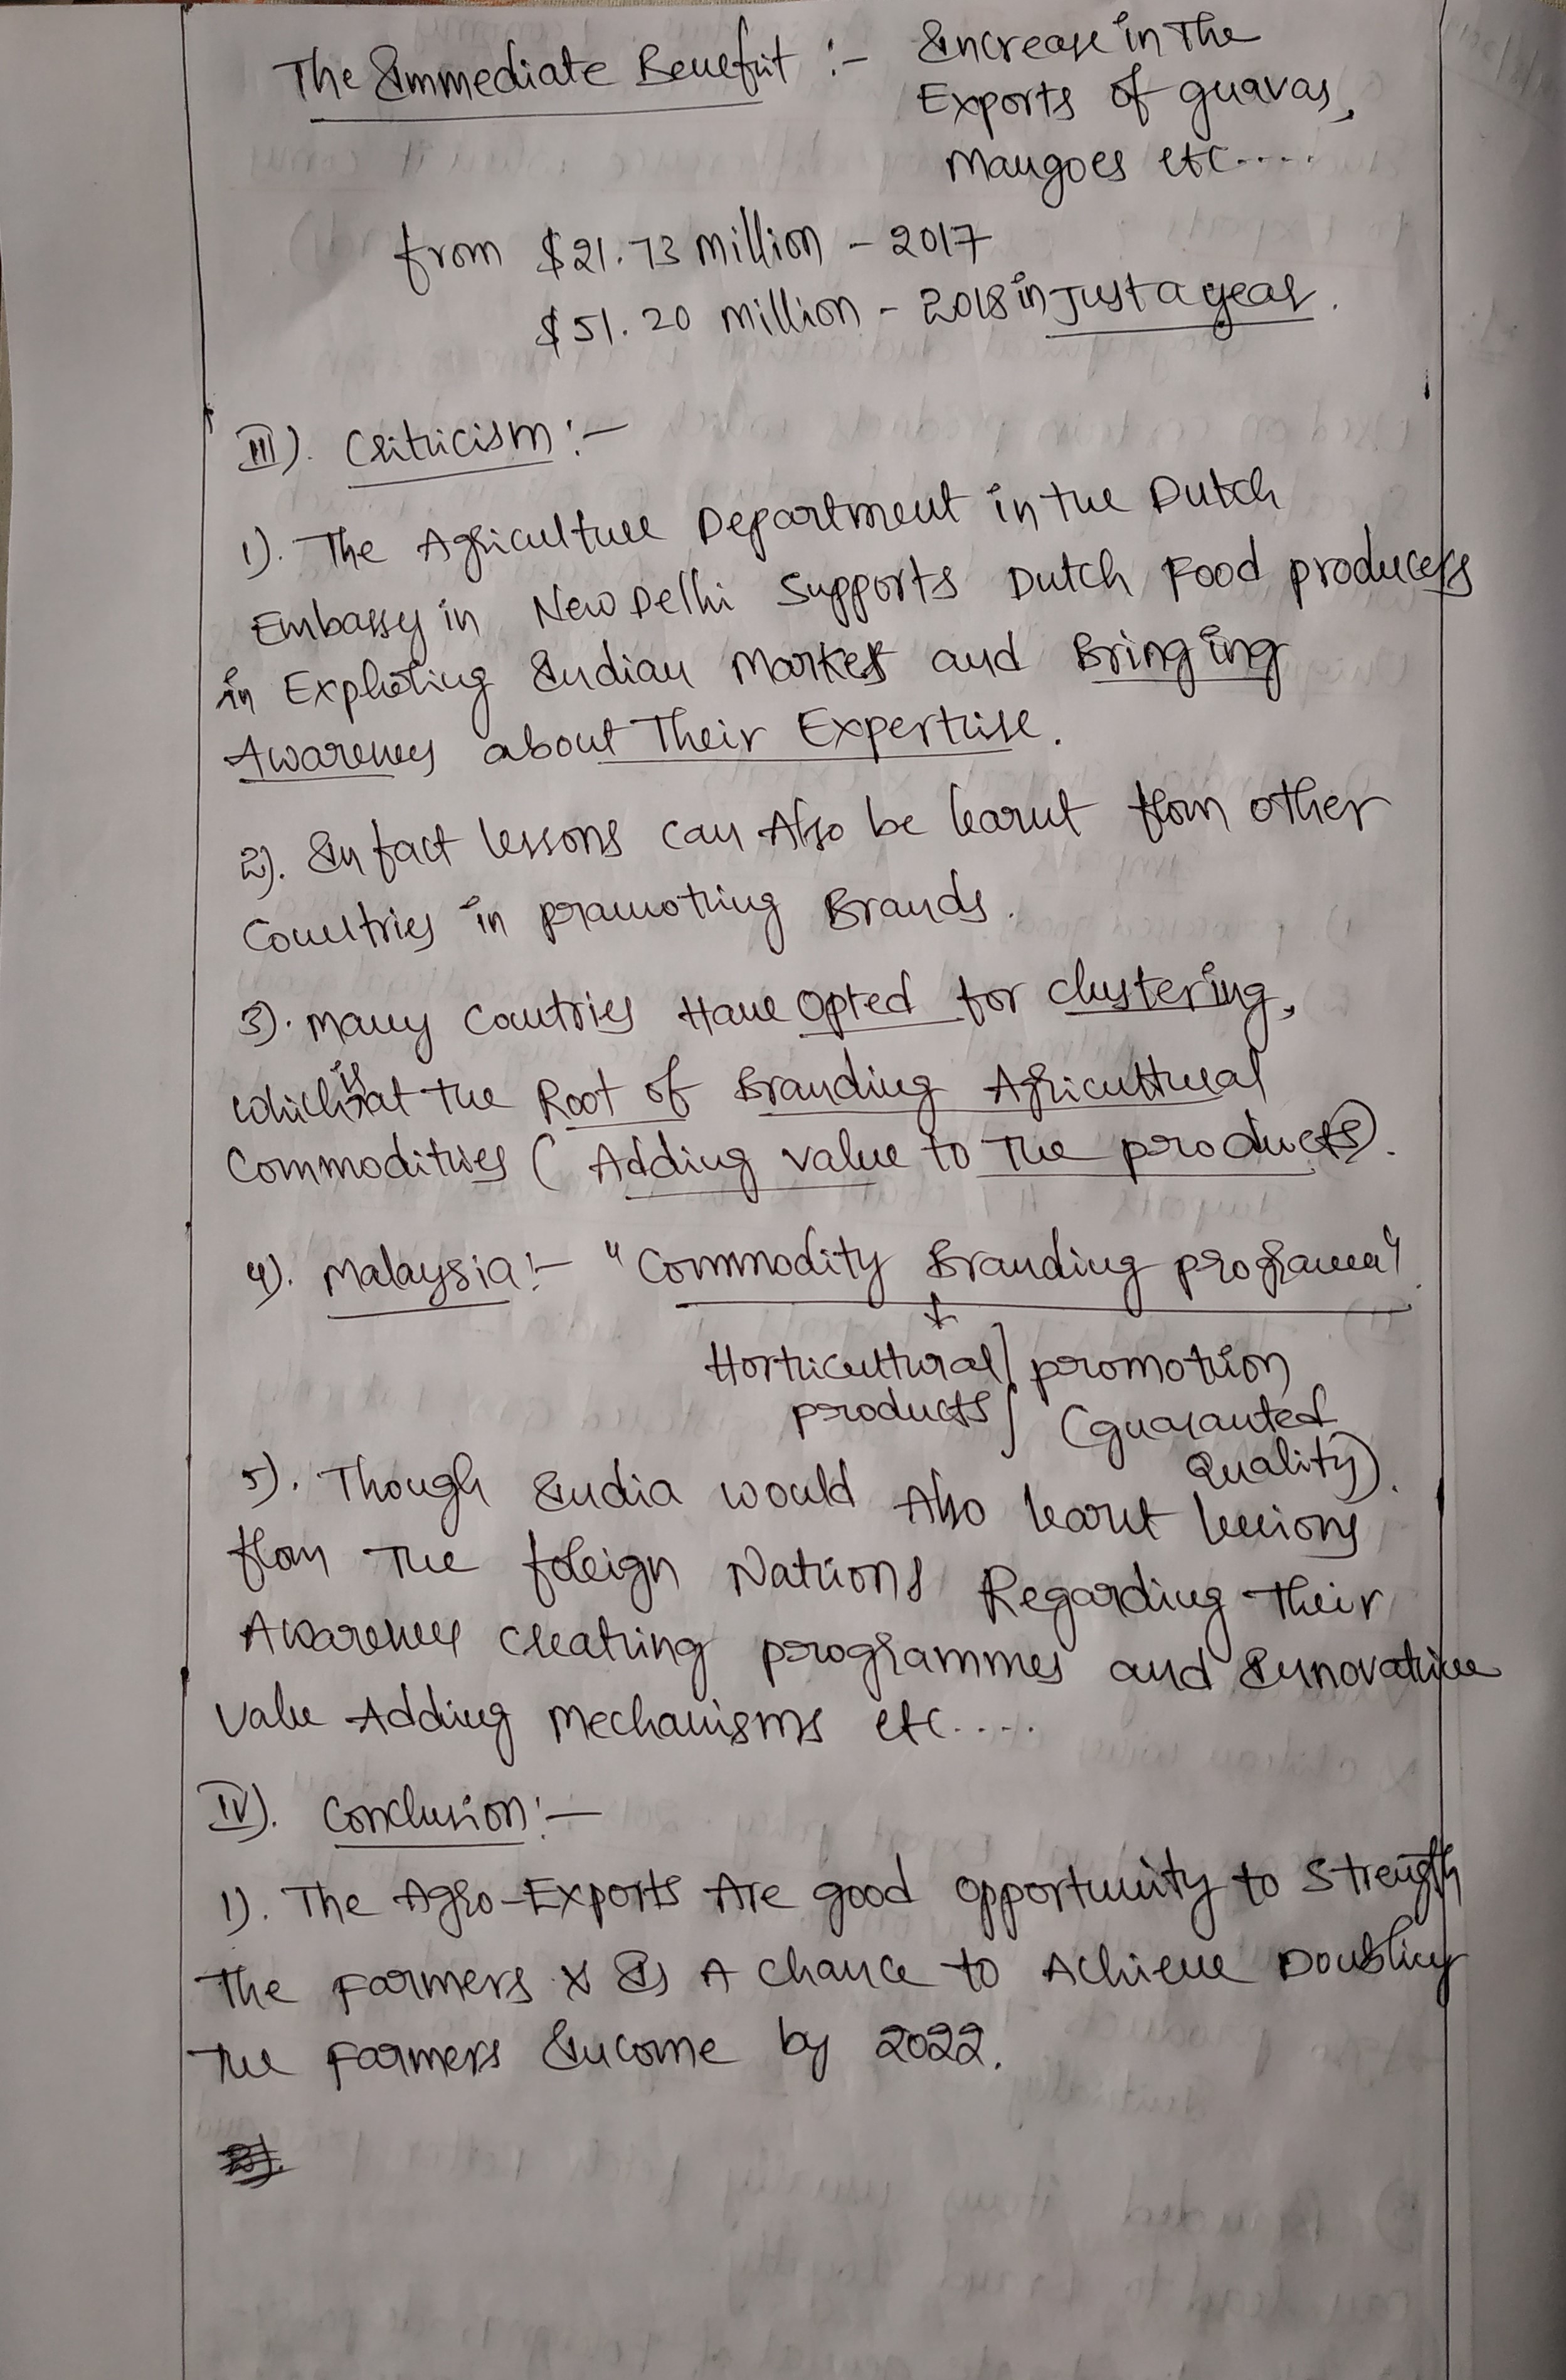 The Immediate Benefit :- Increase in The
Exports of guavas,
Mangoes etc....
from $21.73 million - 2017
$51.20 million - 2018 in Just a year.
III). Criticism :-
1). The Agriculture Department in the Dutch
Embassy in New Delhi Supports Dutch Food producers
in Exploting Indian Market and Bringing
Awareness about Their Expertise.
2). In fact lessons can Also be learnt from other
Countries in promoting Brands.
3). Many Countries Have Opted for clustering,
which is at the Root of Branding Agricultural
Commodities ( Adding value to The products).
4). Malaysia :- "Commodity Branding programm"
Horticultural promotion
products (guaranted
Quality).
5). Though India would Also learnt lessions
from The foreign Nations Regarding Their
Awareness creating programmes and Innovative
Value Adding Mechanisms etc....
IV). Conclusion :-
1). The Agro-Exports Are good opportunity to Strength
The Farmers & Is A chance to Achieve Doubling
The Farmers Income by 2022.